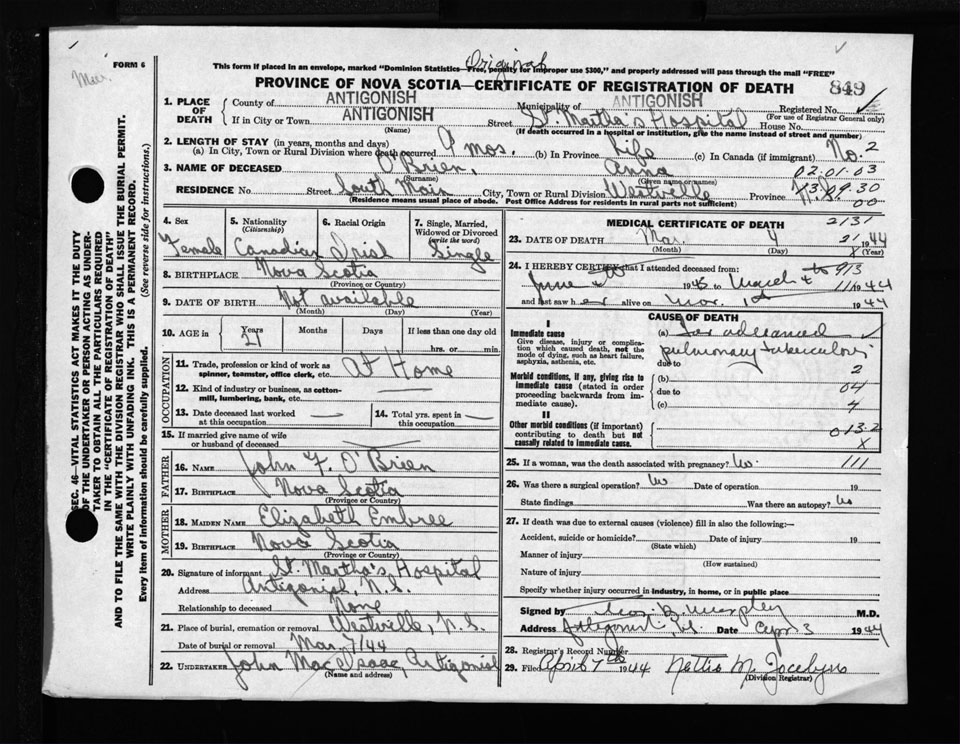 Original
FORM 6
This form if placed in an envelope, marked "Dominion Statistics—Free, penalty for improper use $300," and properly addressed will pass through the mail "FREE"
PROVINCE OF NOVA SCOTIA—CERTIFICATE OF REGISTRATION OF DEATH 849
1. PLACE OF DEATH County of ANTIGONISH Municipality of ANTIGONISH Registered No.
(For use of Registrar General only)
If in City or Town ANTIGONISH Street St. Martha's Hospital House No.
(Name) (If death occurred in a hospital or institution, give the name instead of street and number)
2. LENGTH OF STAY (in years, months and days)
(a) In City, Town or Rural Division where death occurred 9 mos. (b) In Province Life (c) In Canada (if immigrant) No. 2
3. NAME OF DECEASED O'Brien, Anna 02.01.03
(Surname) (Given name or names)
RESIDENCE No. Street South Main City, Town or Rural Division Westville Province N.S.
(Residence means usual place of abode. Post Office Address for residents in rural parts not sufficient)
13.09.30
00
4. Sex 5. Nationality (Citizenship) 6. Racial Origin 7. Single, Married, Widowed or Divorced (write the word)
Female Canadian Irish Single
8. BIRTHPLACE Nova Scotia
(Province or Country)
9. DATE OF BIRTH Not available
(Month) (Day) (Year)
10. AGE in Years Months Days If less than one day old
21 hrs. or min.
OCCUPATION
11. Trade, profession or kind of work as spinner, teamster, office clerk, etc. At Home
12. Kind of industry or business, as cotton-mill, lumbering, bank, etc.
13. Date deceased last worked at this occupation 14. Total yrs. spent in this occupation
15. If married give name of wife or husband of deceased
FATHER
16. NAME John F. O'Brien
17. BIRTHPLACE Nova Scotia
(Province or Country)
MOTHER
18. MAIDEN NAME Elizabeth Embree
19. BIRTHPLACE Nova Scotia
(Province or Country)
20. Signature of informant St. Martha's Hospital
Address Antigonish, N.S.
Relationship to deceased None
21. Place of burial, cremation or removal Westville, N.S.
Date of burial or removal Mar. 7/44
22. UNDERTAKER John MacIsaac, Antigonish
(Name and address)
MEDICAL CERTIFICATE OF DEATH 2131
23. DATE OF DEATH Mar. 4 21 1944
(Month) (Day) X (Year)
24. I HEREBY CERTIFY that I attended deceased from:
June 1943 to March 4 1944
and last saw her alive on Mar. 1st 1944
CAUSE OF DEATH
I
Immediate cause
Give disease, injury or complication which caused death, not the mode of dying, such as heart failure, asphyxia, asthenia, etc.
(a) Far advanced
pulmonary tuberculosis
due to 2
Morbid conditions, if any, giving rise to immediate cause (stated in order proceeding backwards from immediate cause).
(b)
due to 04
(c) 4
II
Other morbid conditions (if important) contributing to death but not causally related to immediate cause.
013-2
X
25. If a woman, was the death associated with pregnancy? No. 111
26. Was there a surgical operation? No Date of operation 19
State findings Was there an autopsy? No
27. If death was due to external causes (violence) fill in also the following:—
Accident, suicide or homicide? Date of injury 19
(State which)
Manner of injury
(How sustained)
Nature of injury
Specify whether injury occurred in industry, in home, or in public place
Signed by Murphy M.D.
Address Antigonish, N.S. Date Apr. 3 1944
28. Registrar's Record Number
29. Filed April 7th 1944 Nettie M. Jocelyn
(Division Registrar)
SEC. 46—VITAL STATISTICS ACT MAKES IT THE DUTY
OF THE UNDERTAKER OR PERSON ACTING AS UNDERTAKER
TO OBTAIN ALL THE PARTICULARS REQUIRED
IN THE "CERTIFICATE OF REGISTRATION OF DEATH"
AND TO FILE THE SAME WITH THE DIVISION REGISTRAR WHO SHALL ISSUE THE BURIAL PERMIT.
WRITE PLAINLY WITH UNFADING INK. THIS IS A PERMANENT RECORD.
Every item of information should be carefully supplied. (See reverse side for instructions.)